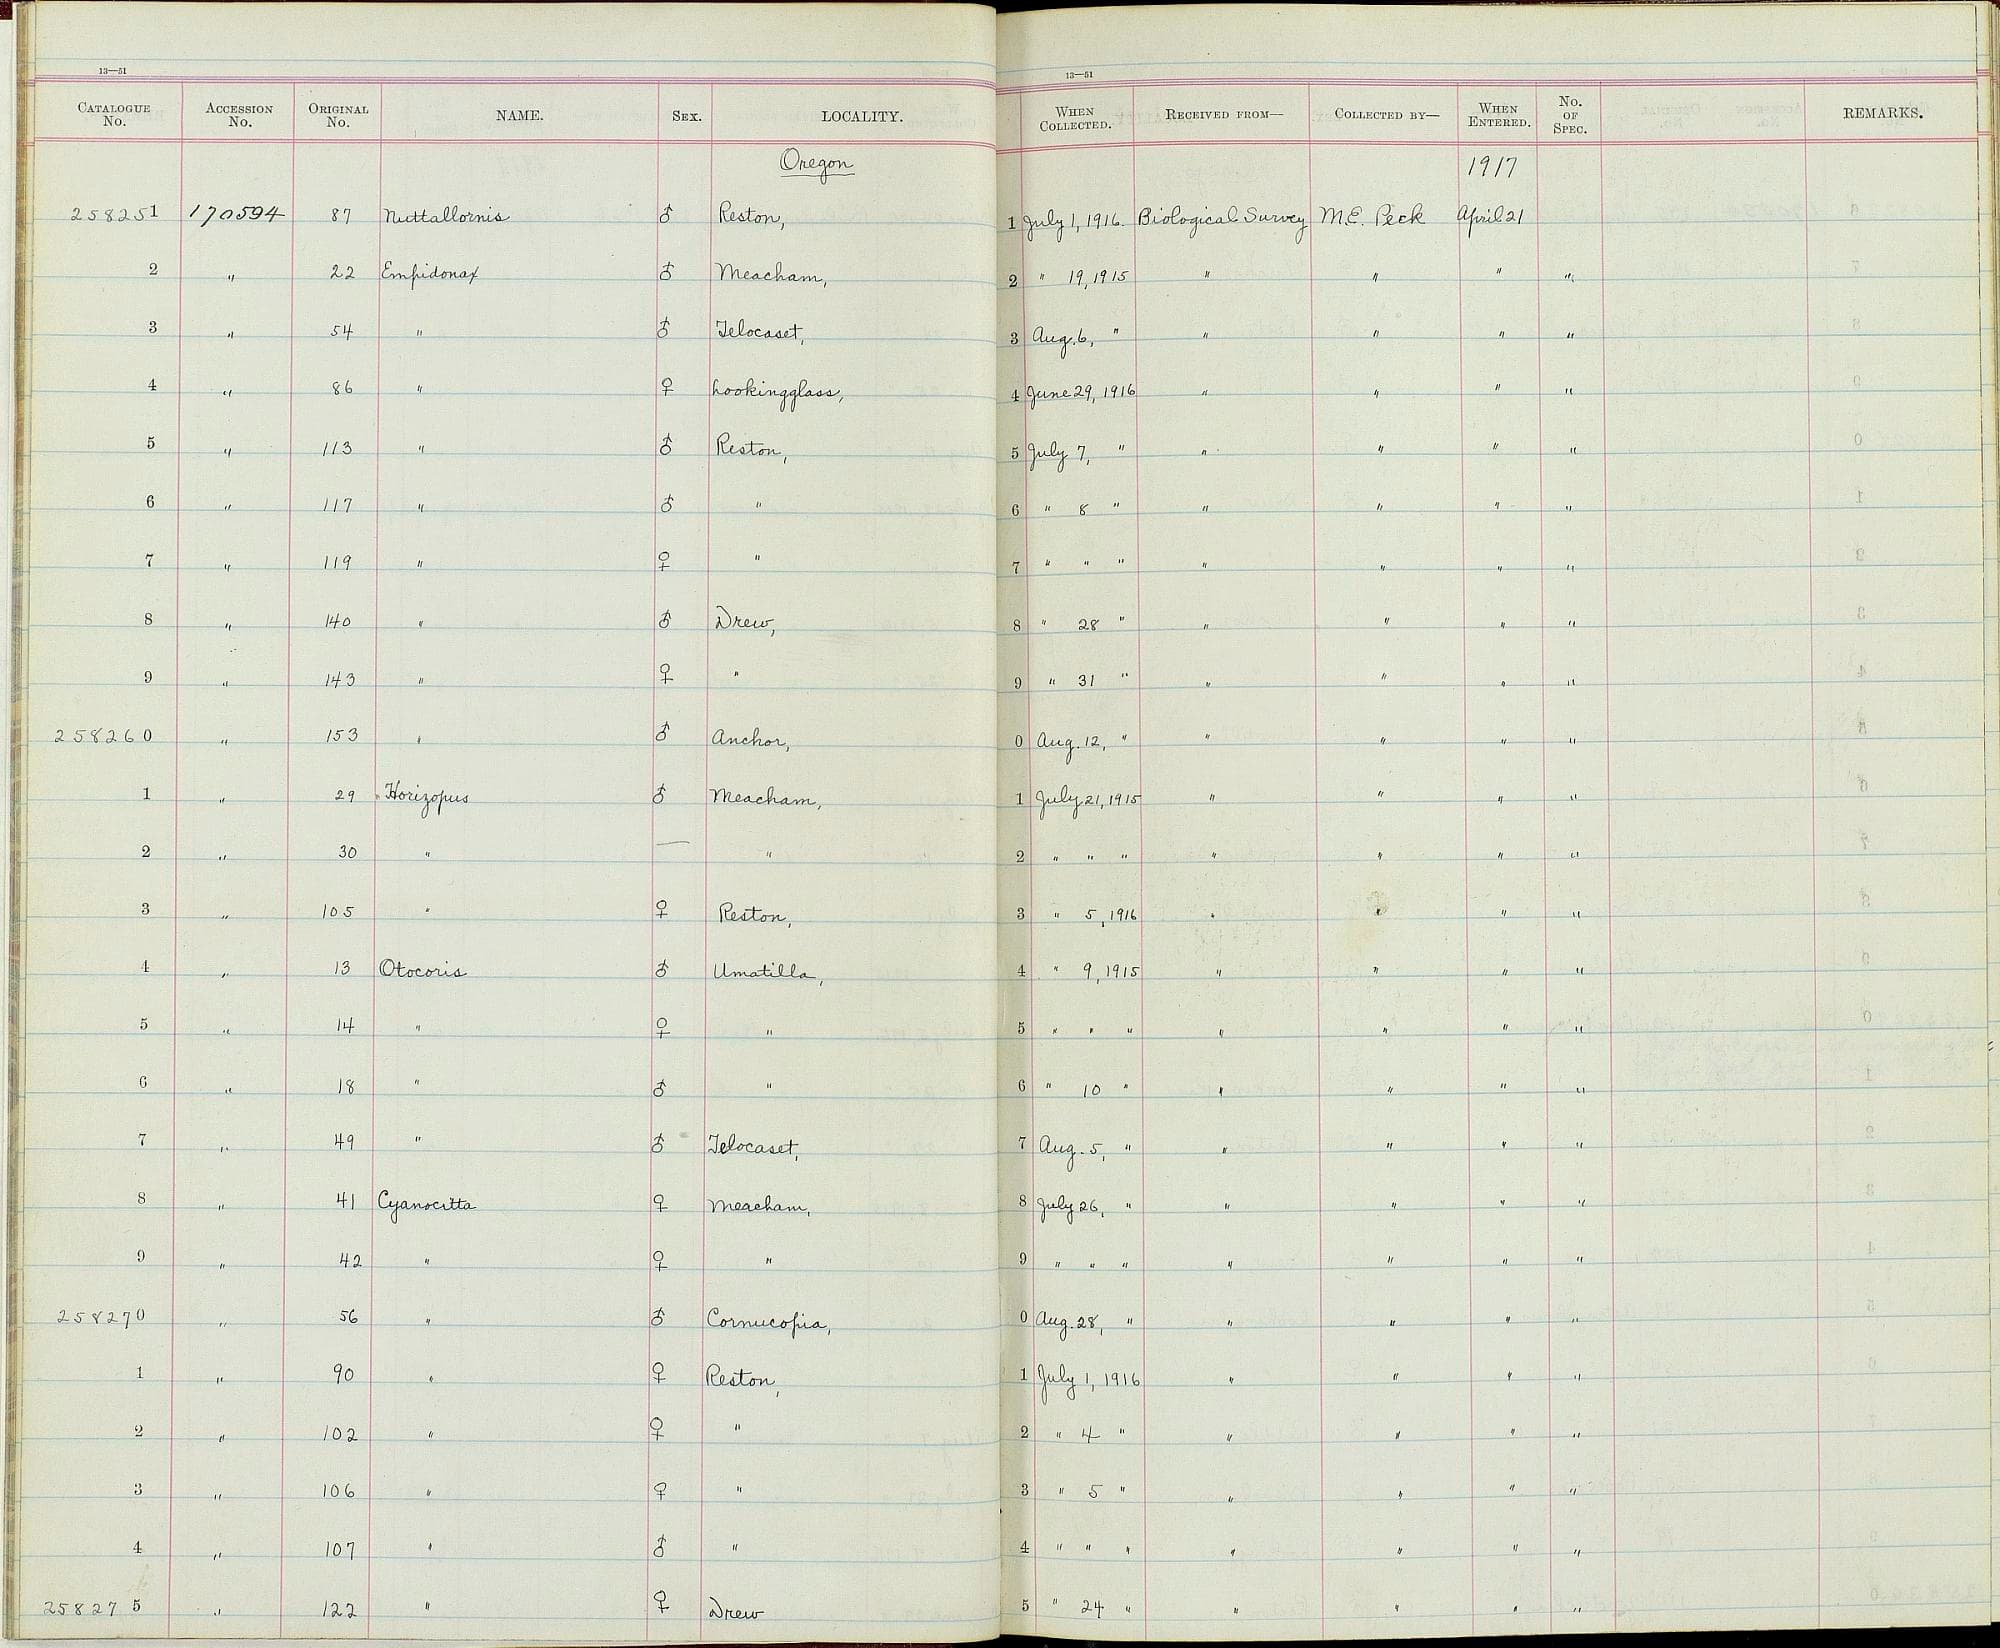 13—51 13—51
CATALOGUE No. ACCESSION No. ORIGINAL No. NAME. SEX. LOCALITY. WHEN COLLECTED. RECEIVED FROM— COLLECTED BY— WHEN ENTERED. No. OF SPEC. REMARKS.
Oregon 1917
258251 170594 87 Nuttallornis ♂ Reston, 1 July 1, 1916. Biological Survey M.E. Peck April 21
2 " 22 Empidonax ♂ Meacham, 2 " 19, 1915 " " " "
3 " 54 " ♂ Telocaset, 3 Aug. 6, " " " " "
4 " 86 " ♀ Lookingglass, 4 June 29, 1916 " " " "
5 " 113 " ♂ Reston, 5 July 7, " " " " "
6 " 117 " ♂ " 6 " 8 " " " " "
7 " 119 " ♀ " 7 " " " " " " "
8 " 140 " ♂ Drew, 8 " 28 " " " " "
9 " 143 " ♀ " 9 " 31 " " " " "
258260 " 153 " ♂ Anchor, 0 Aug. 12, " " " " "
1 " 29 Horizopus ♂ Meacham, 1 July 21, 1915 " " " "
2 " 30 " — " 2 " " " " " " "
3 " 105 " ♀ Reston, 3 " 5, 1916 " " " "
4 " 13 Otocoris ♂ Umatilla, 4 " 9, 1915 " " " "
5 " 14 " ♀ " 5 " " " " " " "
6 " 18 " ♂ " 6 " 10 " " " " "
7 " 49 " ♂ Telocaset, 7 Aug. 5, " " " " "
8 " 41 Cyanocitta ♀ Meacham, 8 July 26, " " " " "
9 " 42 " ♀ " 9 " " " " " " "
258270 " 56 " ♂ Cornucopia, 0 Aug. 28, " " " " "
1 " 90 " ♀ Reston, 1 July 1, 1916 " " " "
2 " 102 " ♀ " 2 " 4 " " " " "
3 " 106 " ♀ " 3 " 5 " " " " "
4 " 107 " ♂ " 4 " " " " " " "
258275 " 122 " ♀ Drew 5 " 24 " " " " "